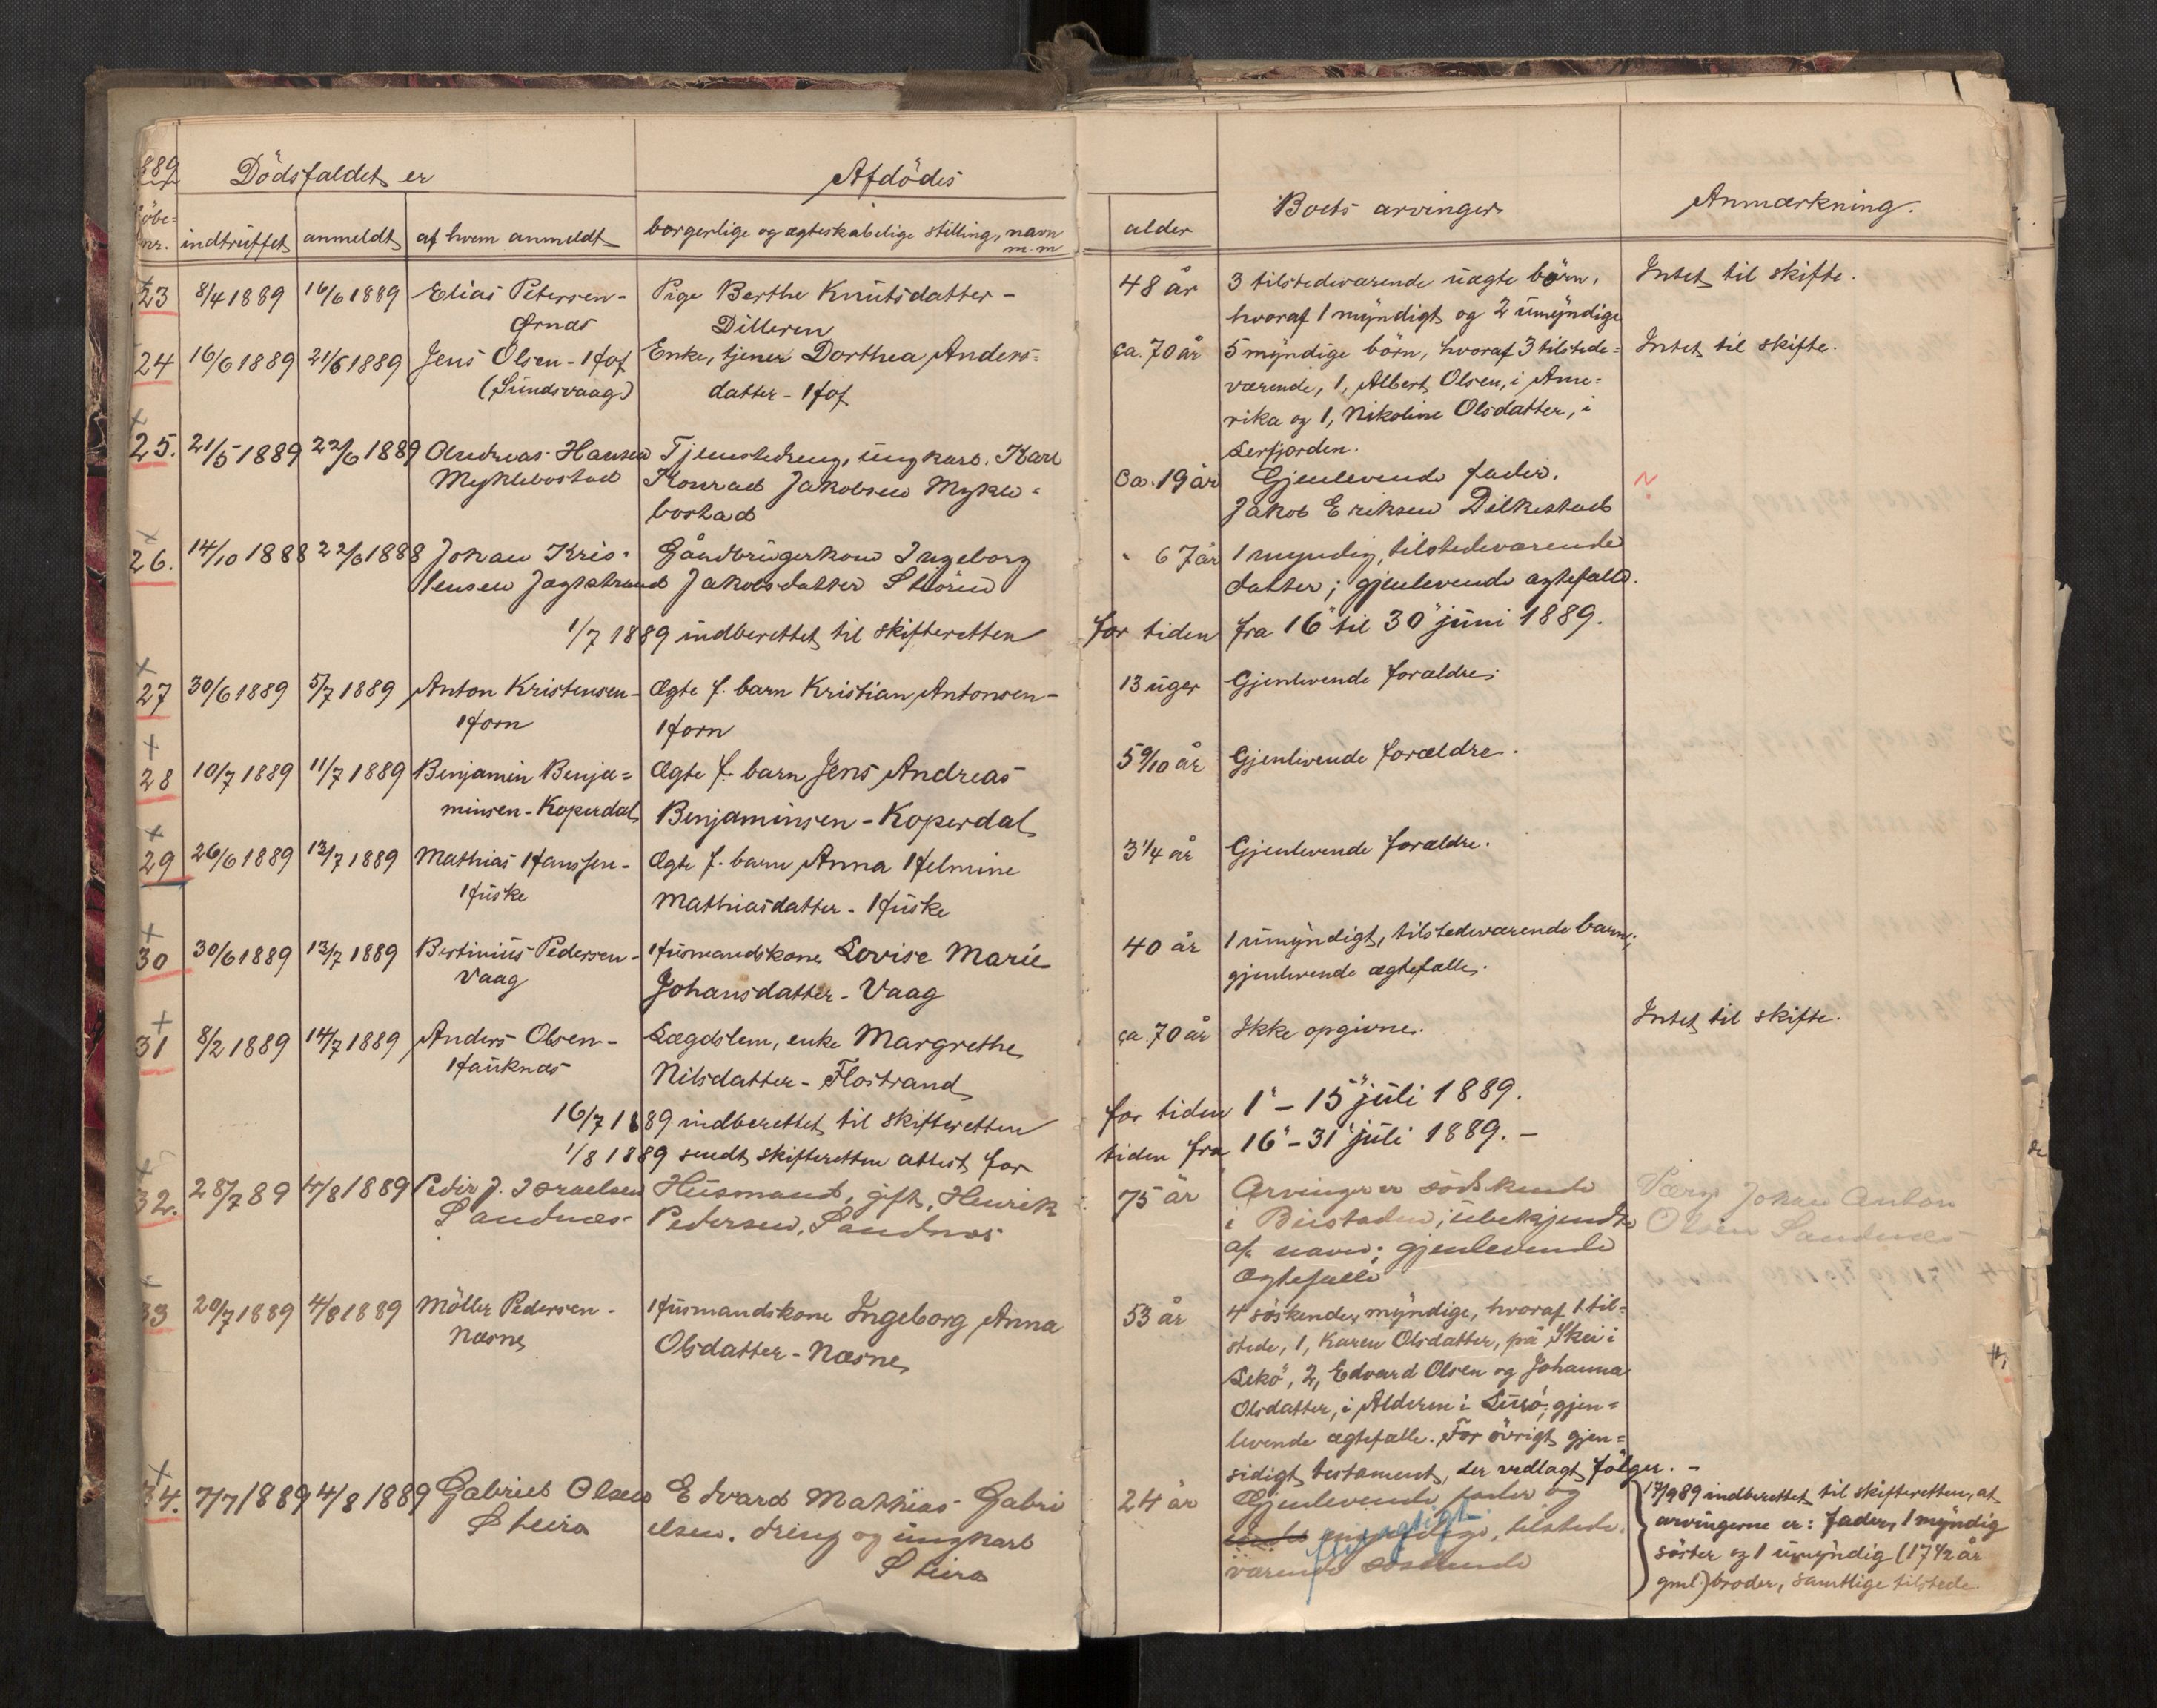 1889
Dödsfaldet er
Afdödes
Boets arvinger
Anmærkning.
Löbe-
nr. indtruffet anmeldt af hvem anmeldt borgerlige og ægteskabelige stilling, navn m.m alder
23 8/4 1889 16/6 1889 Elias Petersen- Pige Berthe Knutsdatter- 48 år 3 tilstedeværende uægte börn, Intet til skifte.
Ørnæs Dilleren hvoraf 1 myndigt og 2 umyndige
24 16/6 1889 21/6 1889 Jens Olsen-Hof Enke, tjener Dorthea Anders- ca. 70 år 5 myndige börn, hvoraf 3 tilstede- Intet til skifte.
(Sundsvaag) datter-Hof værende, 1, Albert Olsen, i Ame-
rika og 1, Nikoline Olsdatter, i
Serfjorden.
25. 21/5 1889 22/6 1889 Andreas Hansen Tjenstedreng, ungkarl. Karl ca. 19 år Gjenlevende fader.
Myklebostad Konrad Jakobsen Mykle- Jakob Eriksen Dilkestad
bostad
26. 14/10 1888 22/6 1888 Johan Kris- Gårdbrugerkone Ingeborg " 67 år 1 myndig, tilstedeværende
tensen Jagtstrand Jakobsdatter Stiören datter; gjenlevende ægtefælle.
1/7 1889 indberettet til skifteretten for tiden fra 16" til 30" juni 1889.
27 30/6 1889 5/7 1889 Anton Kristensen- Ægte f. barn Kristian Antonsen- 13 uger Gjenlevende forældre.
Horn Horn
28 10/7 1889 11/7 1889 Benjamin Benja- Ægte f. barn Jens Andreas 5 9/10 år Gjenlevende forældre.
minsen-Koperdal Benjaminsen-Koperdal
29 26/6 1889 13/7 1889 Mathias Hanssen- Ægte f. barn Anna Helmine 3 1/4 år Gjenlevende forældre.
Huske Mathiasdatter-Huske
30 30/6 1889 13/7 1889 Bertinius Pedersen- Husmandskone Lovise Marie 40 år 1 umyndigt, tilstedeværende barn;
Vaag Johansdatter-Vaag gjenlevende ægtefælle.
31 8/2 1889 14/7 1889 Anders Olsen- Lægdslem, enke Margrethe ca. 70 år Ikke opgivne. Intet til skifte.
Hauknæs Nilsdatter-Flostrand
16/7 1889 indberettet til skifteretten for tiden 1"-15" juli 1889.
1/8 1889 sendt skifteretten attest for tiden fra 16"-31" juli 1889.-
32. 28/7 89 4/8 1889 Peder J. Israelsen Husmand, gift, Henrik 75 år Arvinger er södskende Johan Anton
Sandnæs Pedersen, Sandnæs i Bustaden; ubekjendt Olsen Sandnæs
af navn; gjenlevende
Ægtefælle
33 20/7 1889 4/8 1889 Möller Pedersen- Husmandskone Ingeborg Anna 53 år 4 söskende, myndige, hvoraf 1 til-
Næsne Olsdatter-Næsne stede, 1, Karen Olsdatter, på Skei i
Lekö, 2, Edvard Olsen og Johanna
Olsdatter, i Alderen i Lurö; gjen-
levende ægtefælle. For övrigt gjen-
sidigt testament, der vedlagt fölger.-
34. 7/7 1889 4/8 1889 Gabriel Olsen Edvard Mathias Gabri 24 år Gjenlevende fader og 17/9 89 indberettet til skifteretten, at
Steira elsen. dreng og ungkarl tilstede- arvingerne er: fader, 1 myndig
Steira værende söskende söster og 1 umyndig (17 1/2 år
gml.) broder, samtlige tilstede.